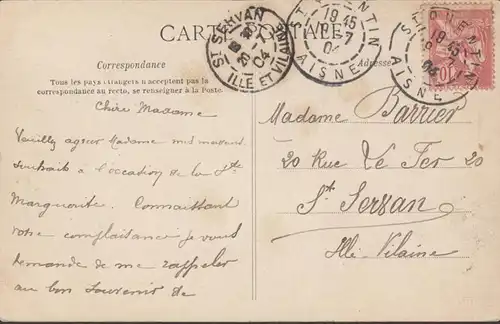 CARTE POSTALE
Correspondance
Tous les pays étrangers n'acceptent pas la
correspondance au recto, se renseigner à la Poste.
Adresse
ST SERVAN
20 -7
04
ILLE ET VILAINE
ST QUENTIN
19 45
-7
04
AISNE
ST QUENTIN
19 45
-7
04
AISNE
10
Chère Madame
Veuillez agréer Madame mes
souhaits à l'occasion de la Ste
Marguerite. Connaissant
votre complaisance je vous
demande de me rappeler
au bon souvenir de
Madame Barrier
20 Rue Le Fer 20
St Servan
Ille Vilaine